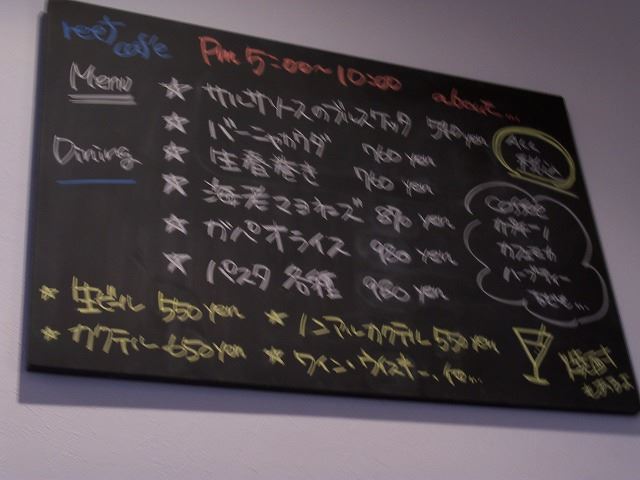 reef cafe
Pm 5:00~10:00 about...
Menu
Dining
★ サルサソースのブルスケッタ 590yen
★ バーニャカウダ 760 yen
★ 生春巻き 760 yen
★ 海老マヨネーズ 890 yen
★ ガパオライス 980 yen
★ パスタ各種 980 yen
ALL
税込
coffee
カプチーノ
カフェモカ
ハーブティー
★ 生ビール 550yen
★ カクテル 650yen
★ ノンアルカクテル 550yen
★ ワイン・ウイスキー、etc...